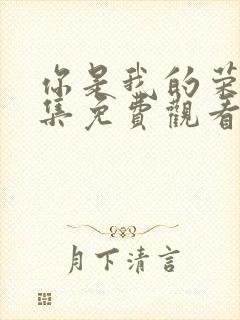 你是我的荣
集免費觀看
月下清言